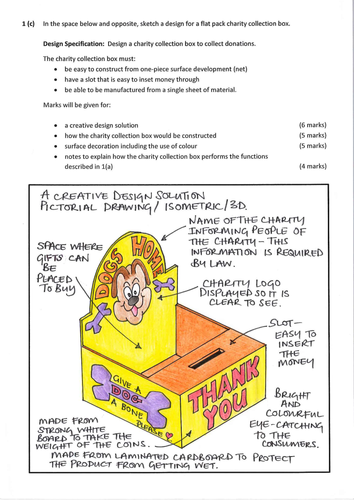 1 (c) In the space below and opposite, sketch a design for a flat pack charity collection box.
Design Specification: Design a charity collection box to collect donations.
The charity collection box must:
• be easy to construct from one-piece surface development (net)
• have a slot that is easy to inset money through
• be able to be manufactured from a single sheet of material.
Marks will be given for:
• a creative design solution (6 marks)
• how the charity collection box would be constructed (5 marks)
• surface decoration including the use of colour (5 marks)
• notes to explain how the charity collection box performs the functions
described in 1(a) (4 marks)
A CREATIVE DESIGN SOLUTION
PICTORIAL DRAWING / ISOMETRIC / 3D.
NAME OF THE CHARITY
INFORMING PEOPLE OF
THE CHARITY – THIS
INFORMATION IS REQUIRED
BY LAW.
SPACE WHERE
GIFTS CAN
BE
PLACED
TO BUY
DOGS HOME
CHARITY LOGO
DISPLAYED SO IT IS
CLEAR TO SEE.
SLOT –
EASY TO
INSERT
THE
MONEY
GIVE A
DOG
A BONE
PLEASE
THANK
YOU
BRIGHT
AND
COLOURFUL
EYE-CATCHING
TO THE
CONSUMERS.
MADE FROM
STRONG WHITE
BOARD TO TAKE THE
WEIGHT OF THE COINS.
MADE FROM LAMINATED CARDBOARD TO PROTECT
THE PRODUCT FROM GETTING WET.